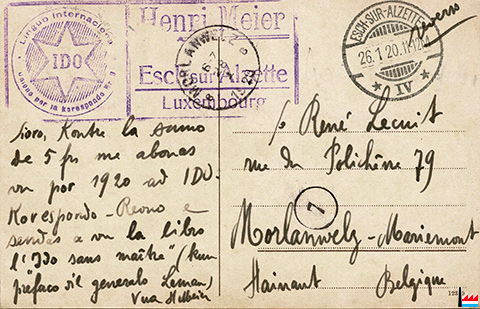 Linguo Internaciona
IDO
Uzado por la korespondo Nr. 3
Henri Meier
Esch sur Alzette
Luxembourg
MORLANWELZ
1920
ESCH-SUR-ALZETTE
26.1.20.11-12
VI
reverso
Sioro, Kontre la sumo
de 5 fr. me abonas
vu por 1920 ad IDO-
Korespondo-Revuo e
sendas a vu la libro
"l'Ido sans maître" (kun
prefaco dil generalo Leman)
Vua
René Lecuit
rue du Polichêne 79
1
Morlanwelz-Mariemont
Hainaut Belgique